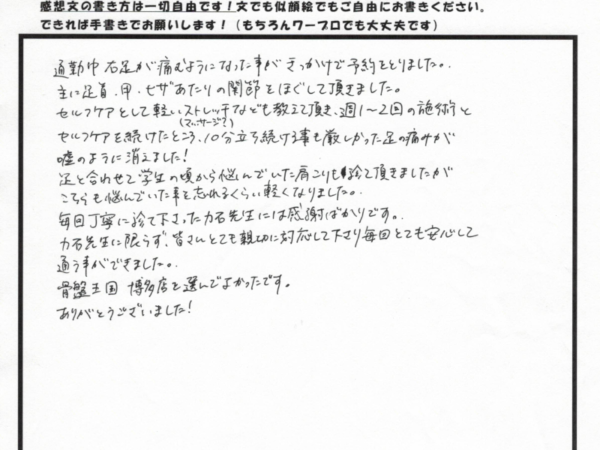 感想文の書き方は一切自由です！文でも似顔絵でもご自由にお書きください。
できれば手書きでお願いします！（もちろんワープロでも大丈夫です）
通勤中 右足が痛むようになった事がきっかけで予約をとりました。
主に足首、甲、ヒザあたりの関節をほぐして頂きました。
セルフケアとして軽いストレッチなども教えて頂き、週1〜2回の施術と
(マッサージ?)
セルフケアを続けたところ、10分立ち続ける事も厳しかった足の痛みが
嘘のように消えました！
足と合わせて学生の頃から悩んでいた肩こりも診て頂きましたが
こちらも悩んでいた事を忘れるくらい軽くなりました。
毎回丁寧に診て下さった力石先生には感謝ばかりです。
力石先生に限らず、皆さんとても親切に対応して下さり毎回とても安心して
通う事ができました。
骨盤王国 博多店を選んでよかったです。
ありがとうございました！